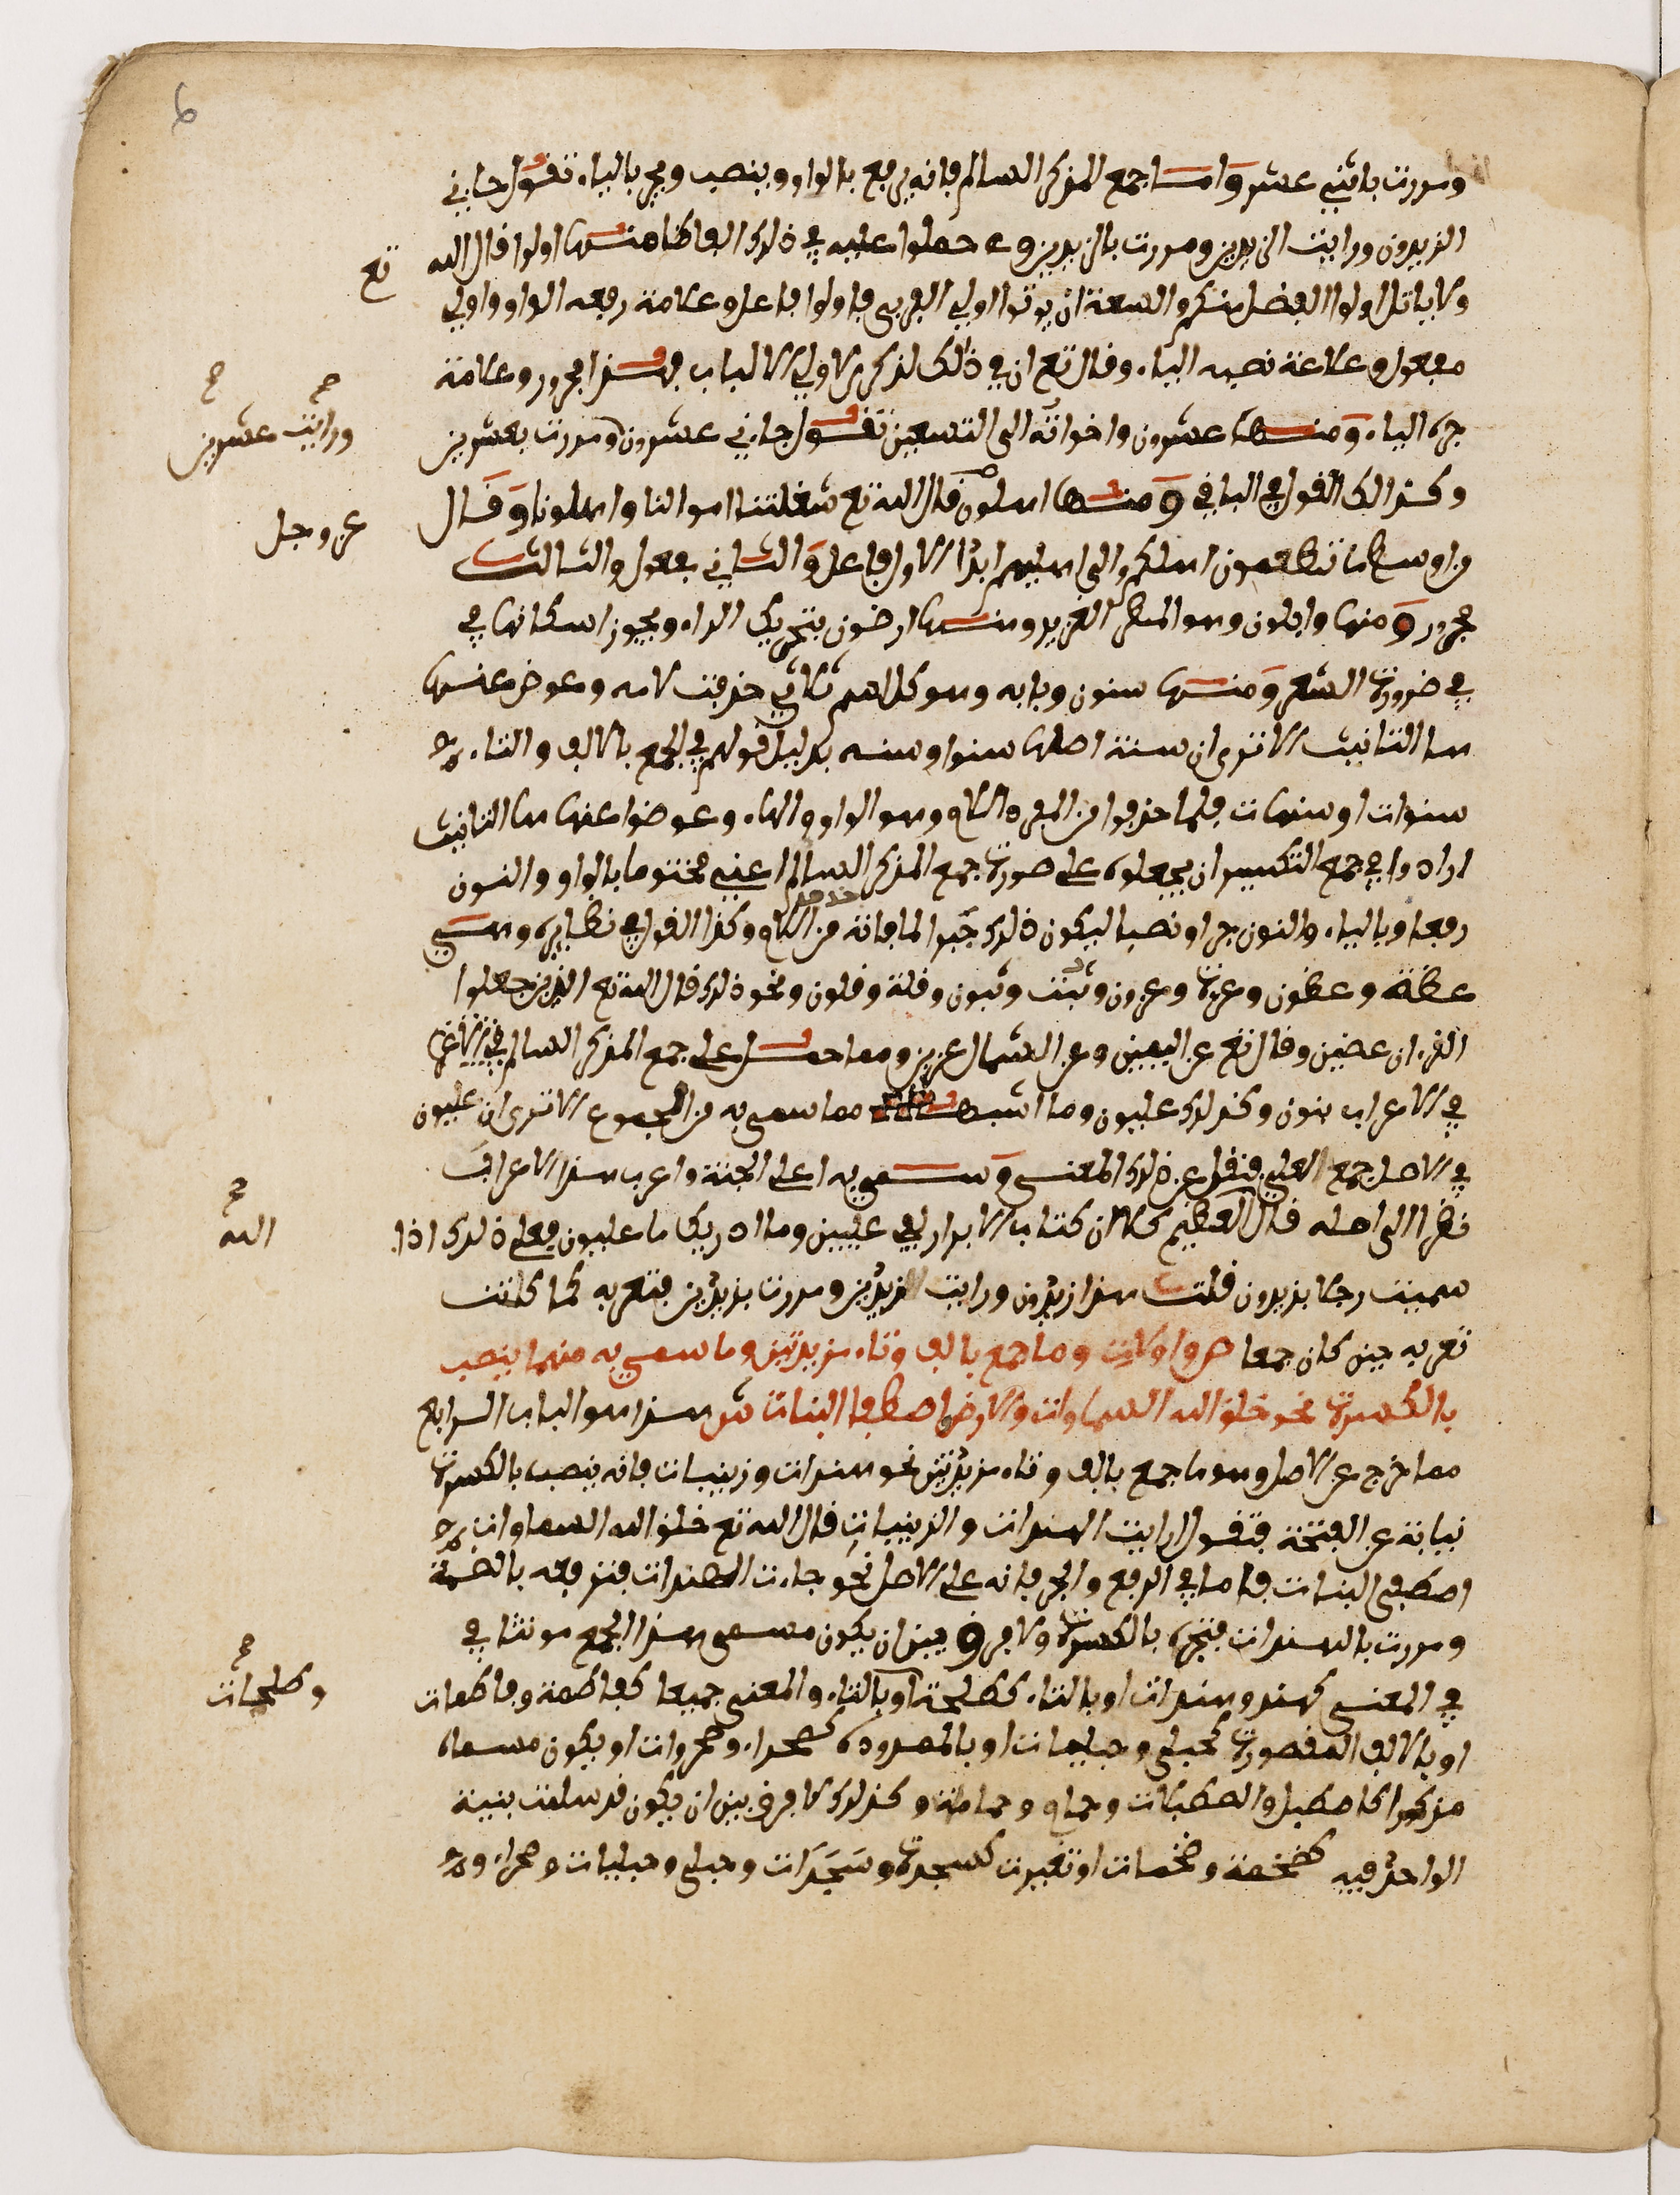 6
ومررت باثني عشر واما جمع المذكر السالم فانه يرفع بالواو وينصب ويجر بالياء تقول جاءني
الزيدون ورايت الزيدين ومررت بالزيدين وحملوا عليه في ذلك الفاظا منها اولوا قال الله تع
ولا ياتل اولوا الفضل منكم والسعة ان يوتوا اولي القربى فاولوا فاعل وعلامة رفعه الواو واولي
مفعول وعلامة نصبه الياء وقال تع ان في ذلك لذكرى لاولي الالباب فهذا مجرور وعلامة
جره الياء ومنها عشرون واخواته الى التسعين تقول جاءني عشرون ومررت بعشرين
ورايت عشرين
وكذلك القول في الباقي ومنها اهلون قال الله تع شغلتنا اموالنا واهلونا وقال
عز وجل
من اوسط ما تطعمون اهليكم الى اهليهم ابدا الاول فاعل والثاني مفعول والثالث
مجرور ومنها وابلون وهو المطر الغزير ومنها ارضون بتحريك الراء ويجوز اسكانها في
في ضرورة الشعر ومنها سنون وبابه وهو كل اسم ثلاثي حذفت لامه وعوض عنها
هاء التانيث الا ترى ان سنة اصلها سنو او سنه بدليل قولهم في الجمع بالالف والتاء
سنوات او سنهات فلما حذفوا من المفرد اللام وهو الواو والهاء وعوضوا عنها هاء التانيث
ارادوا في جمع التكسير ان يجعلوه على صورة جمع المذكر السالم اعني مختوما بالواو والنون
رفعا وبالياء والنون جرا ونصبا ليكون ذلك جبرا لما فاته من اللام وكذا القول في نظايره وهي
عضة وعضون وعزة وعزون وثبة وثبون وقلة وقلون ونحو ذلك قال الله تع الذين جعلوا
القرءان عضين وقال تع عن اليمين وعن الشمال عزين ومما حمل على جمع المذكر السالم
في الاعراب بنون وكذلك عليون وما اشبهه مما سمي به من الجموع الا ترى ان عليون
في الاصل جمع لعلي فنقل عن ذلك المعنى وسمي به اعلى الجنة واعرب هذا الاعراب
نظرا الى اصله قال الله العظيم كلا ان كتاب الابرار لفي عليين وما ادريك ما عليون فعلى ذلك اذا
سميت رجلا بزيدون قلت هذا زيدون ورايت زيدين ومررت بزيدين فتعربه كما كانت
تعربه حين كان جمعا ص واولات وما جمع بالف وتاء مزيدتين وما سمي به منهما ينصب
بالكسرة نحو خلق الله السماوات والارض اصطفى البنات ش هذا هو الباب الرابع
مما خرج عن الاصل وهو ما جمع بالف وتاء مزيدتين نحو هندات وزينبات فانه ينصب بالكسرة
نيابة عن الفتحة فتقول رايت الهندات والزينبات قال الله تع خلق الله السماوات
اصطفى البنات فاما في الرفع والجر فانه على الاصل نحو جاءت الهندات فترفعه بالضمة
ومررت بالهندات فتجره بالكسرة ولا فرق بين ان يكون مسمى هذا الجمع مونثا في
في المعنى كهند وهندات او بالتاء كطلحة او بالتاء والمعنى جميعا كفاطمة وفاطمات
وطلحات
او بالالف المقصورة كحبلى وحبليات او بالممدودة كصحراء وصحروات او يكون مسماه
مذكرا كاصطبل واصطبلات وحمام وحمامات وكذلك لا فرق بين ان يكون قد سلمت بنية
الواحد فيه كضخمة وضخمات او تغيرت كسجدة وسجدات وحبلى وحبليات وصحراء